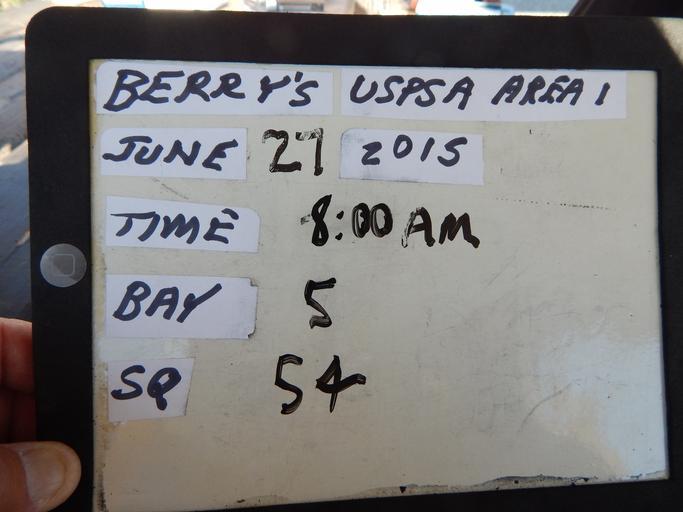 BERRY'S USPSA AREA 1
JUNE 27 2015
TIME 8:00 AM
BAY 5
SQ 54